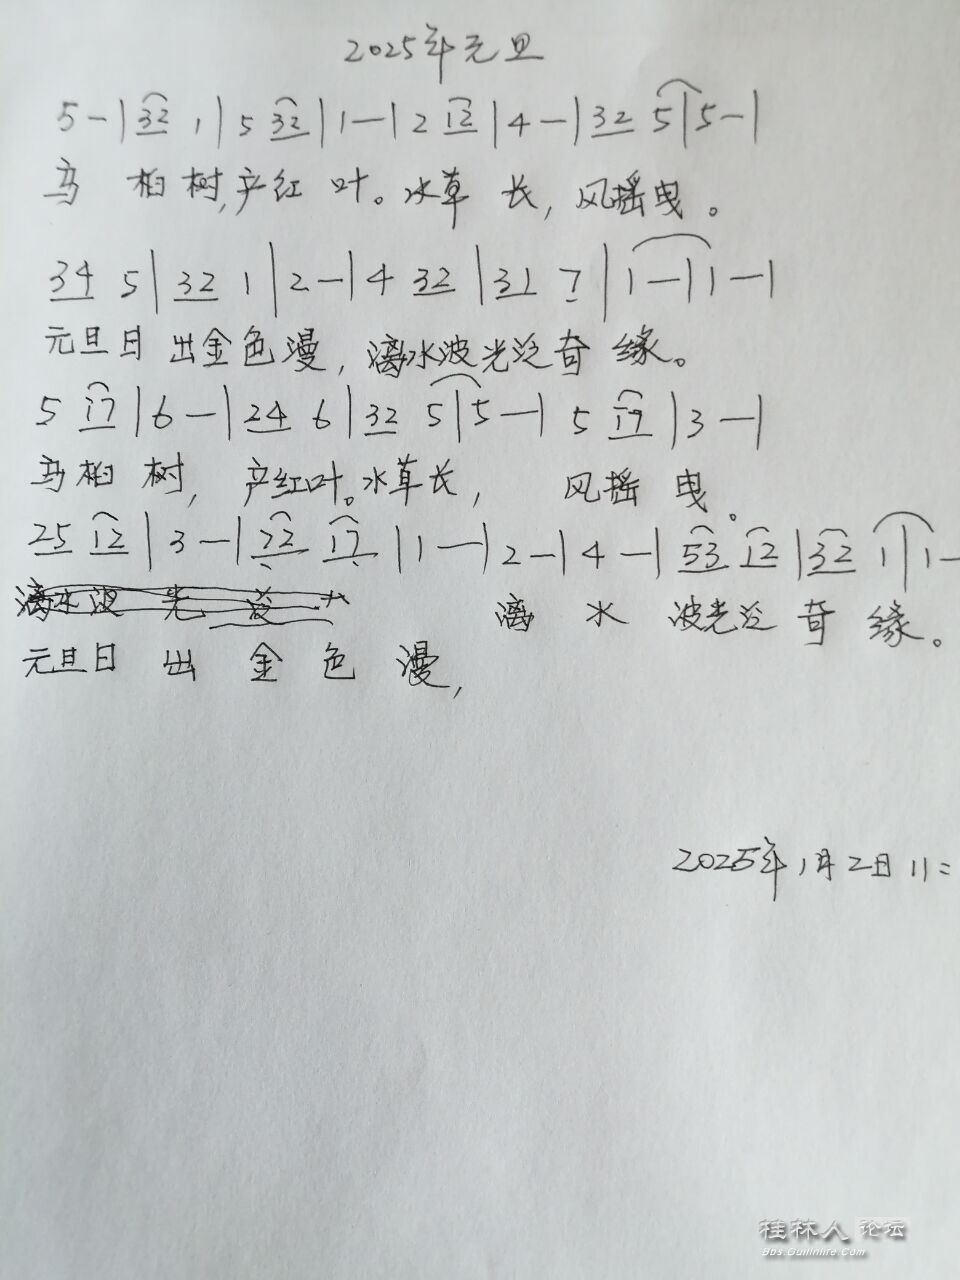 2025年元旦
5 - | 32 1 | 5 32 | 1 - | 2 12 | 4 - | 32 5 | 5 - |
乌 桕 树,产红 叶。水草 长,风摇曳。
34 5 | 32 1 | 2 - | 4 32 | 31 7 | 1 - | 1 - |
元旦日 出金色漫,漓水波光泛奇 缘。
5 17 | 6 - | 24 6 | 32 5 | 5 - | 5 17 | 3 - |
乌桕 树, 产红叶。水草长, 风摇 曳。
25 12 | 3 - | 22 17 | 1 - | 2 - | 4 - | 53 12 | 32 1 | 1 -
漓水波 光 泛 漓 水 波光泛 奇 缘。
元旦日 出 金 色 漫,
2025年1月2日11:
桂林人 论坛
Bbs.Guilinlife.Com